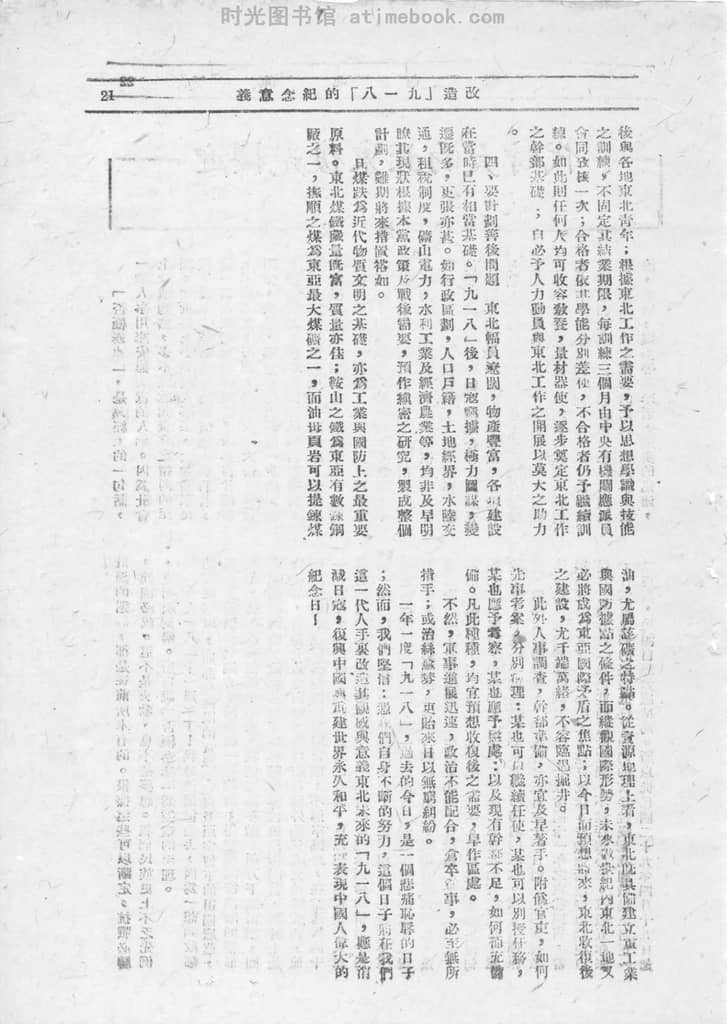 时光图书馆 atimebook.com
改造「九一八」的紀念意義
21
22
後與各地東北青年；根據東北工作之需要，予以思想學識與技能
之訓練，不固定其結業期限，每訓練三個月由中央有機關應派員
合同致核一次；合格者依其學能分別差使，不合格者仍予繼續訓
練。如此則任何人均可收容敎養，量材器使，逐步奠定東北工作
之幹部基礎；自必予人力動員與東北工作之開展以莫大之助力
。
四、要計劃善後問題　東北幅員遼闊，物產豐富，各項建設
在當時已有相當基礎。「九一八」後，日寇竊據，極力圖謀，變
遷旣多，更張亦甚。如行政區劃，人口戶籍，土地經界，水陸交
通，租稅制度，礦山電力，水利工業及經濟農業等，均非及早明
瞭其現狀根據本黨政策及戰後需要，預作縝密之研究，製成整個
計劃，難期將來措置裕如。
且煤鉄爲近代物質文明之基礎，亦爲工業與國防上之最重要
原料。東北煤鐵藏量旣富，質量亦佳；鞍山之鐵爲東亞有數鍊鋼
廠之一，撫順之煤爲東亞最大煤礦之一，而油母頁岩可以提鍊煤
油，尤屬諸礦之特點。從資源地理上看，東北旣具備建立重工業
與國防據點之條件，而縱觀國際形勢，未來數十紀內東北一地又
必將成爲東亞國際矛盾之焦點；以今日而預想將來，東北收復後
之建設，尤千端萬緒，不容臨渴掘井。
此外人事調查，幹部準備，亦宜及早著手。附僞官吏，如何
先事考案，分別清理：某也可以繼續任使，某也可以別授任務，
某也應予霽察，某也應予懲處；以及現有幹部不足，如何補充儲
備。凡此種種，均宜預想收復後之需要，早作區處。
不然，軍事進展迅速，政治不能配合，倉卒從事，必至無所
措手；或治絲益棼，更貽來日以無窮糾紛。
一年一度「九一八」，過去的今日，是一個悲痛恥辱的日子
；然而，我們堅信：憑我們自身不斷的努力，這個日子將在我們
這一代人手裏改造其觀感與意義東北未來的「九一八」，應是消
滅日寇，復興中國與重建世界永久和平，充分表現中國人偉大的
紀念日！